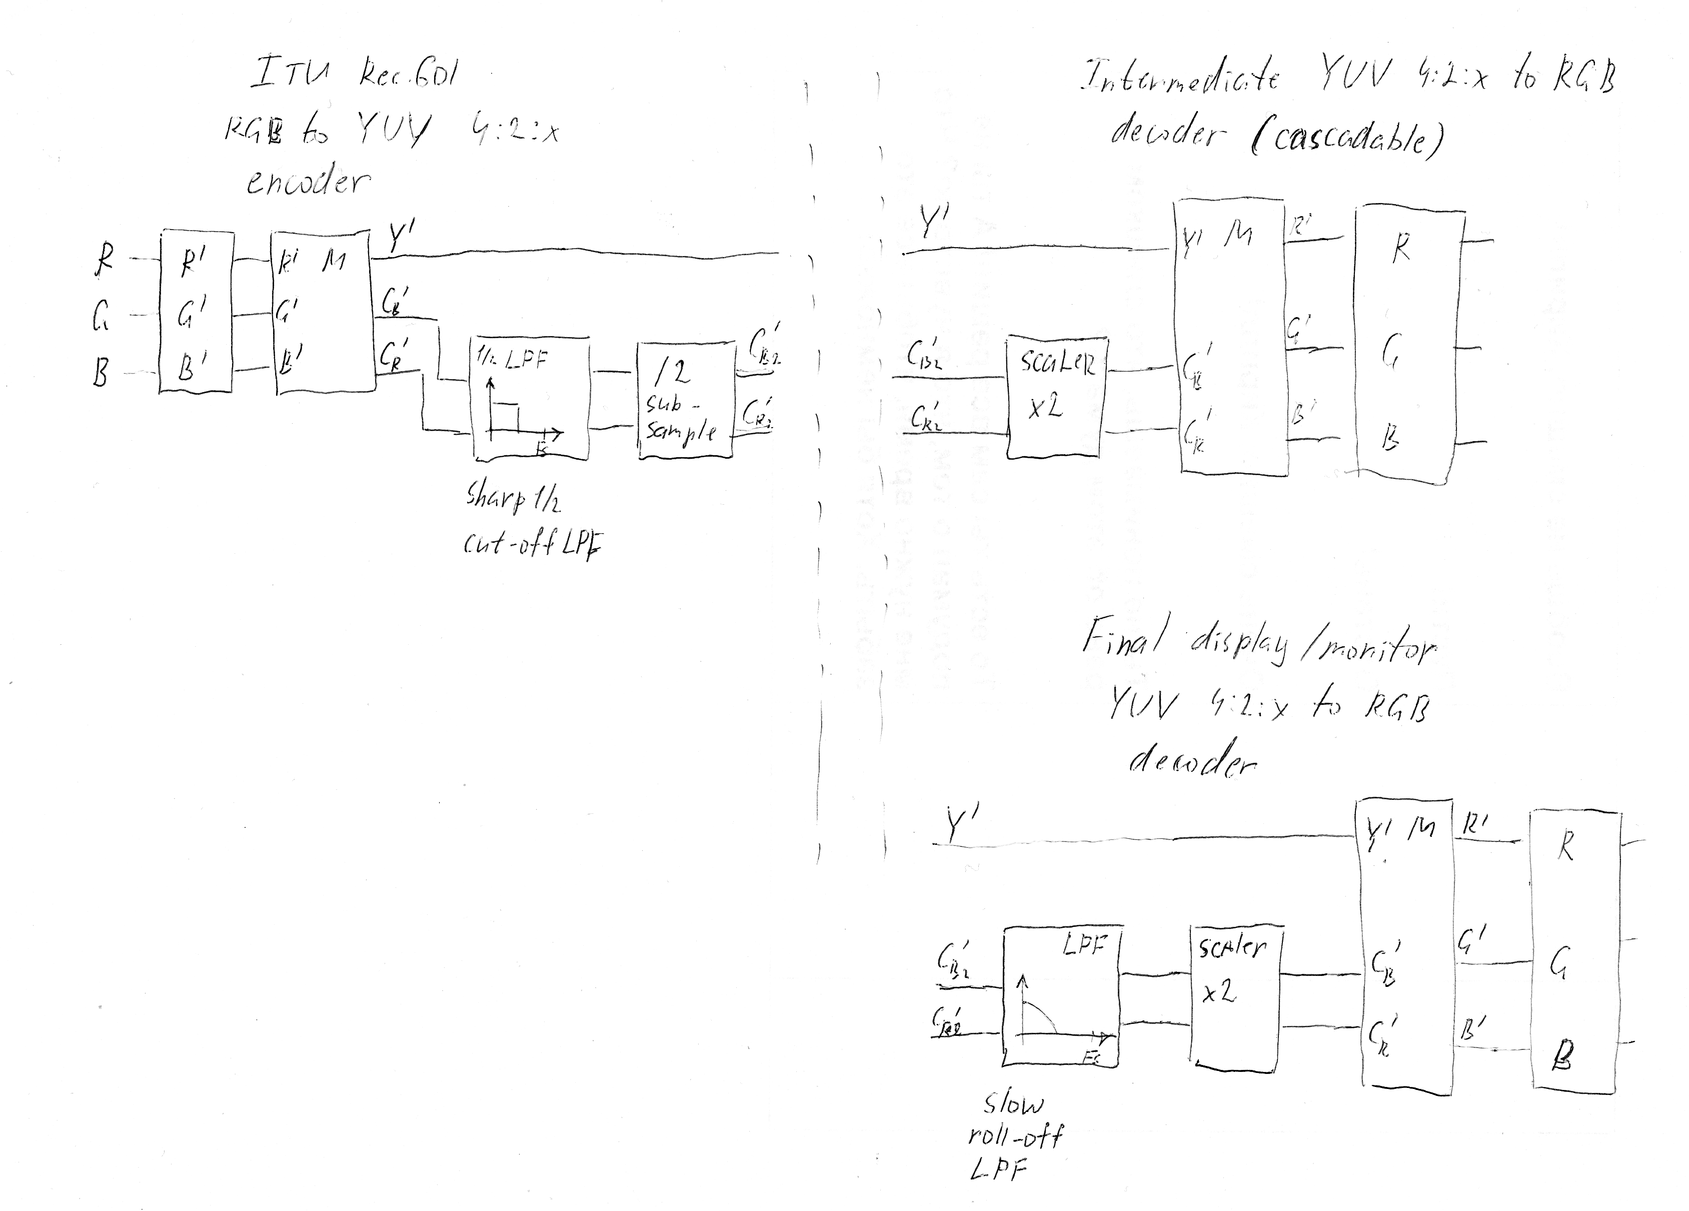 ITU Rec.601
RGB to YUV 4:2:x
encoder
R
G
B
R'
G'
B'
R' M
G'
B'
Y'
C'B
C'R
1/2 LPF
Fs
sharp 1/2
cut-off LPF
/2
sub-
sample
C'B2
C'R2
Intermediate YUV 4:2:x to RGB
decoder (cascadable)
Y'
C'B2
C'R2
SCALER
x2
Y' M
C'B
C'R
R'
G'
B'
R
G
B
Final display/monitor
YUV 4:2:x to RGB
decoder
Y'
C'B2
C'R2
LPF
Fs
slow
roll-off
LPF
SCALER
x2
Y' M
C'B
C'R
R'
G'
B'
R
G
B